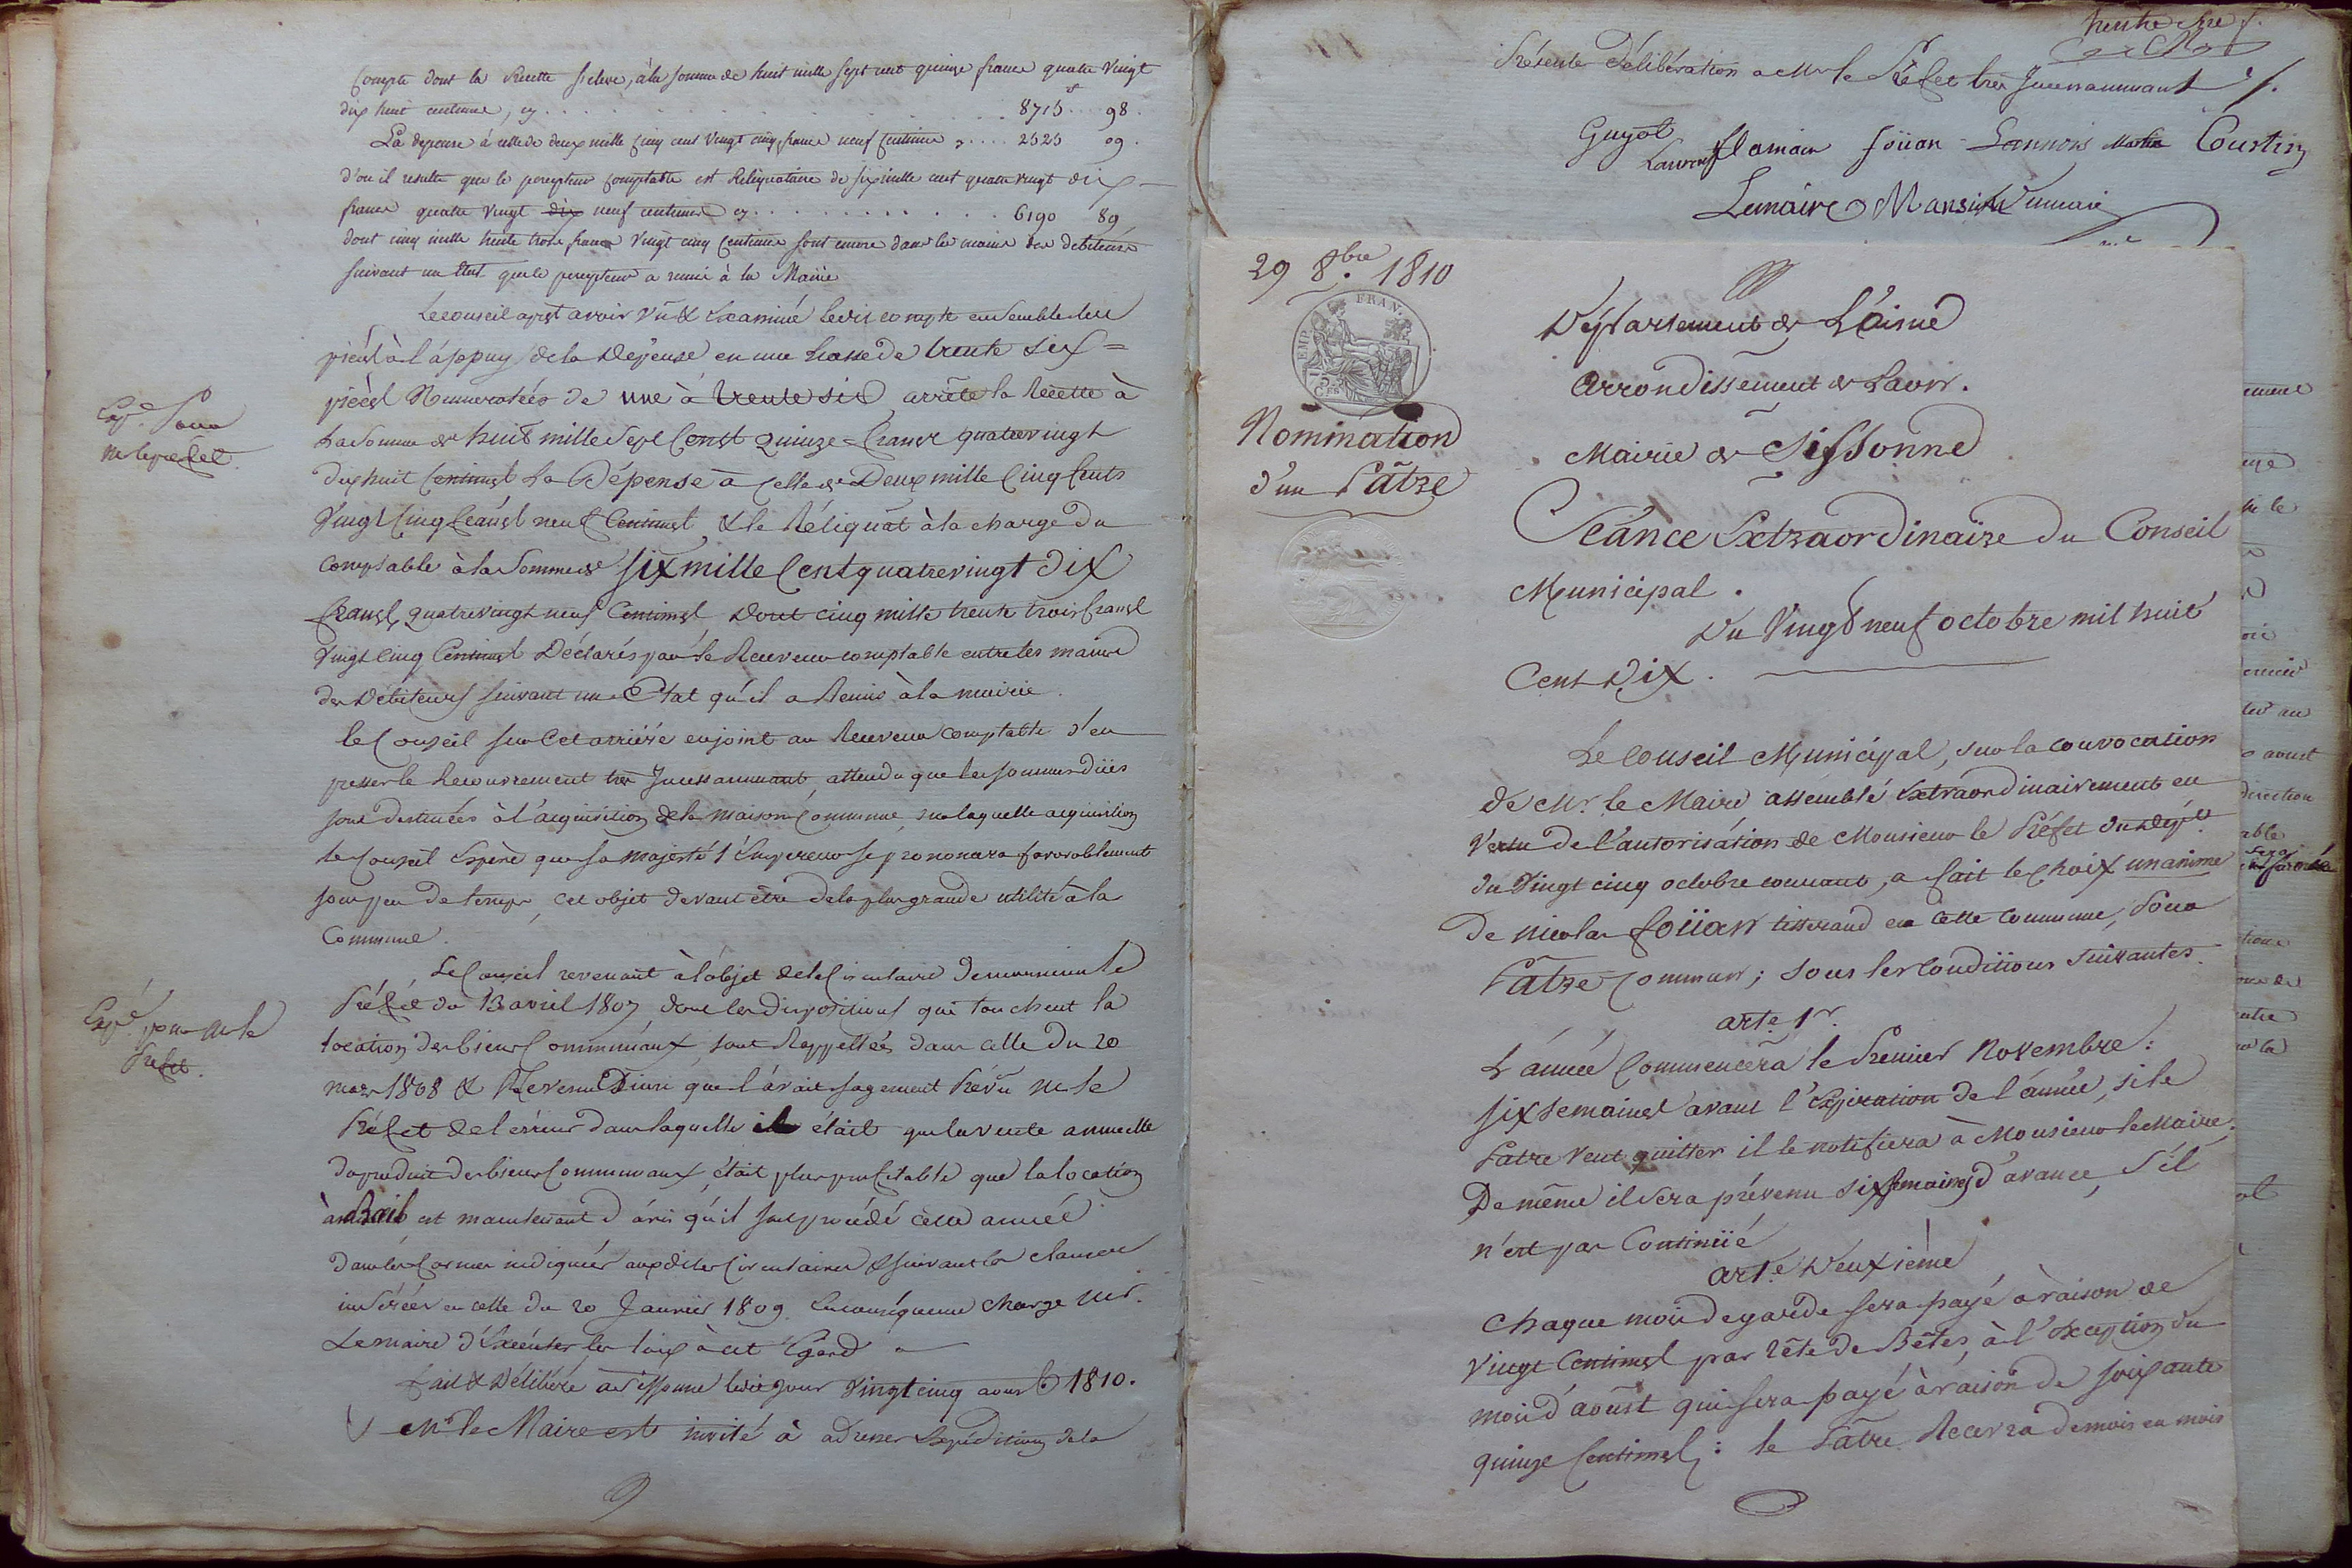 Compte dont la Recette s'eleve, à la somme de huit mille sept cent quinze francs quatre Vingt
dix huit centimes, cy . . . . 8715 f. 98.
La depense à celle de deux mille cinq cent Vingt cinq francs neuf Centimes, . . . . 2525 09.
d'ou il resulte que le percepteur comptable est Reliquataire de six mille cent quatre vingt dix
francs quatre Vingt dix neuf centimes cy . . . . 6190 89
dont cinq mille trente trois francs Vingt cinq Centimes sont encore dans les mains des debiteurs
suivant un Etat que le percepteur a remis à la Mairie
Le conseil après avoir Vû & Examiné ledit compte ensemble les
pièces à l'appuy de la Dépense en une liasse de trente six =
pièces Numerotées de une à trente six arrête la Recette à
La Somme de huit mille Sept Cents quinze francs quatrevingt
dixhuit Centimes La Dépense à Celle de Deux mille Cinq Cents
Vingt Cinq francs neuf Centimes, & le Réliquat à la charge du
Comptable à la Somme de six mille Cent quatrevingt dix
francs, quatrevingt neuf Centimes dont cinq mille trente trois francs
Vingt Cinq Centimes Déclarés par le Receveur comptable entre les mains
des Débiteurs suivant un Etat qu'il a Remis à la mairie.
Exp.é Pour
Mr le prefet.
le Conseil sur Cet arriéré enjoint au Receveur Comptable d'en
presser le Recouvrement très Incessamment, attendu que les sommes dües
sont destinées à l'acquisition de la maison Commune, sur laquelle acquisition
le Conseil Espère que sa Majesté l'Empereur se prononcera favorablement
sous peu de temps, cet objet devant être de la plus grande utilité à la
Commune.
Le Conseil revenant à l'objet de la Circulaire de monsieur le
Préfet du 13 avril 1807 dont les dispositions qui touchent la
location des biens Communaux, sont Rappellées dans celle du 20
mars 1808 & Revenu Ainsi que l'avait sagement Prévû Mr le
Préfet de l'érreur dans laquelle il était que la vente annuelle
du produit des biens Communaux, était plus profitable que la location
à Bail, est maintenant d'avis qu'il soit procédé cette année
dans les formes indiquées auxdites Circulaires & suivant les clauses
insérées en celle du 20 Janvier 1809. En conséquence charge Mr.
Le maire d'Exécuter les loix à cet Egard.
Exp.é pour Mr le
Préfet.
Fait & Délibéré à Sissonne ledit jour Vingt cinq aoust 1810.
Mr le Maire est invité à adresser Expédition de la
trente
Présente Délibération à Mr le Préfet très Incessamment
Guyot Laurent flamain foüan Lannois Martin Courtin
Lemaire Mansuet
29 8.bre 1810
EMP. FRAN.
Nomination
d'un Pâtre
Département de L'aisne
Arrondissement de Laon.
Mairie de Sissonne
Séance Extraordinaire du Conseil
Municipal.
Du Vingt neuf octobre mil huit
Cent Dix.
Le Conseil Municipal, sur la convocation
de Mr. le Maire assemblé Extraordinairement en
Vertu de l'autorisation de Monsieur le Préfet du dép.t
du Vingt cinq octobre courant, a fait le Choix unanime
De nicolas foüan tisserand en cette commune, Pour
Pâtre Commun; sous les Conditions suivantes.
art.e 1.r
L'année Commencera le Premier Novembre:
six semaines avant l'Expiration de l'année, si le
Patre veut quitter il le notifiera à Monsieur le Maire.
De même il sera prévenu six semaines d'avance, s'il
n'est pas Continüé
art.e Deuxième
Chaque mois de garde sera payé à raison de
Vingt Centimes par tête de Bêtes, à l'Exception du
mois d'aoust qui sera payé à raison de soixante
quinze Centimes: le Pâtre Recevra de mois en mois